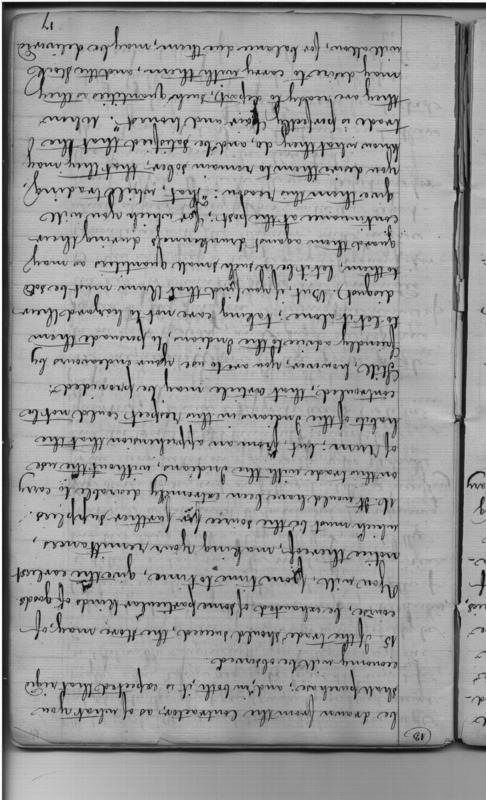 18
be drawn from the Contractor, as of what you
shall purchase; and, in both, it is expected that rigid
economy will be observed.
15 If the trade should succeed, the store may, of
course, be exhausted of some particular kinds of goods.
You will, from time to time, give the earliest
notice thereof, making your remittances,
which must be the source for further supplies.
16 It would have been extremely desirable to carry
on this trade with the Indians, without the use
of Rum; but, from an apprehension that the
habits of the Indians in this respect could not be
controuled, that article may be provided:
Still, however, you are to use your endeavours by
friendly advice to the Indians, to persuade them
to let it alone; taking care not to hazard their
disgust) But, if you find that Rum must be sold
to them, let it be in such small quantities as may
guard them against drunkenness during their
continuance at the post; for which you will
give them this reason: "That, while trading,
you desire them to remain sober, that they may
know what they do, and be satisfied that the
trade is perfectly fair and honest". When
they are ready to depart, such quantities as they
may desire to carry with them, and the stock
will allow, for balance due them, may be delivered
17